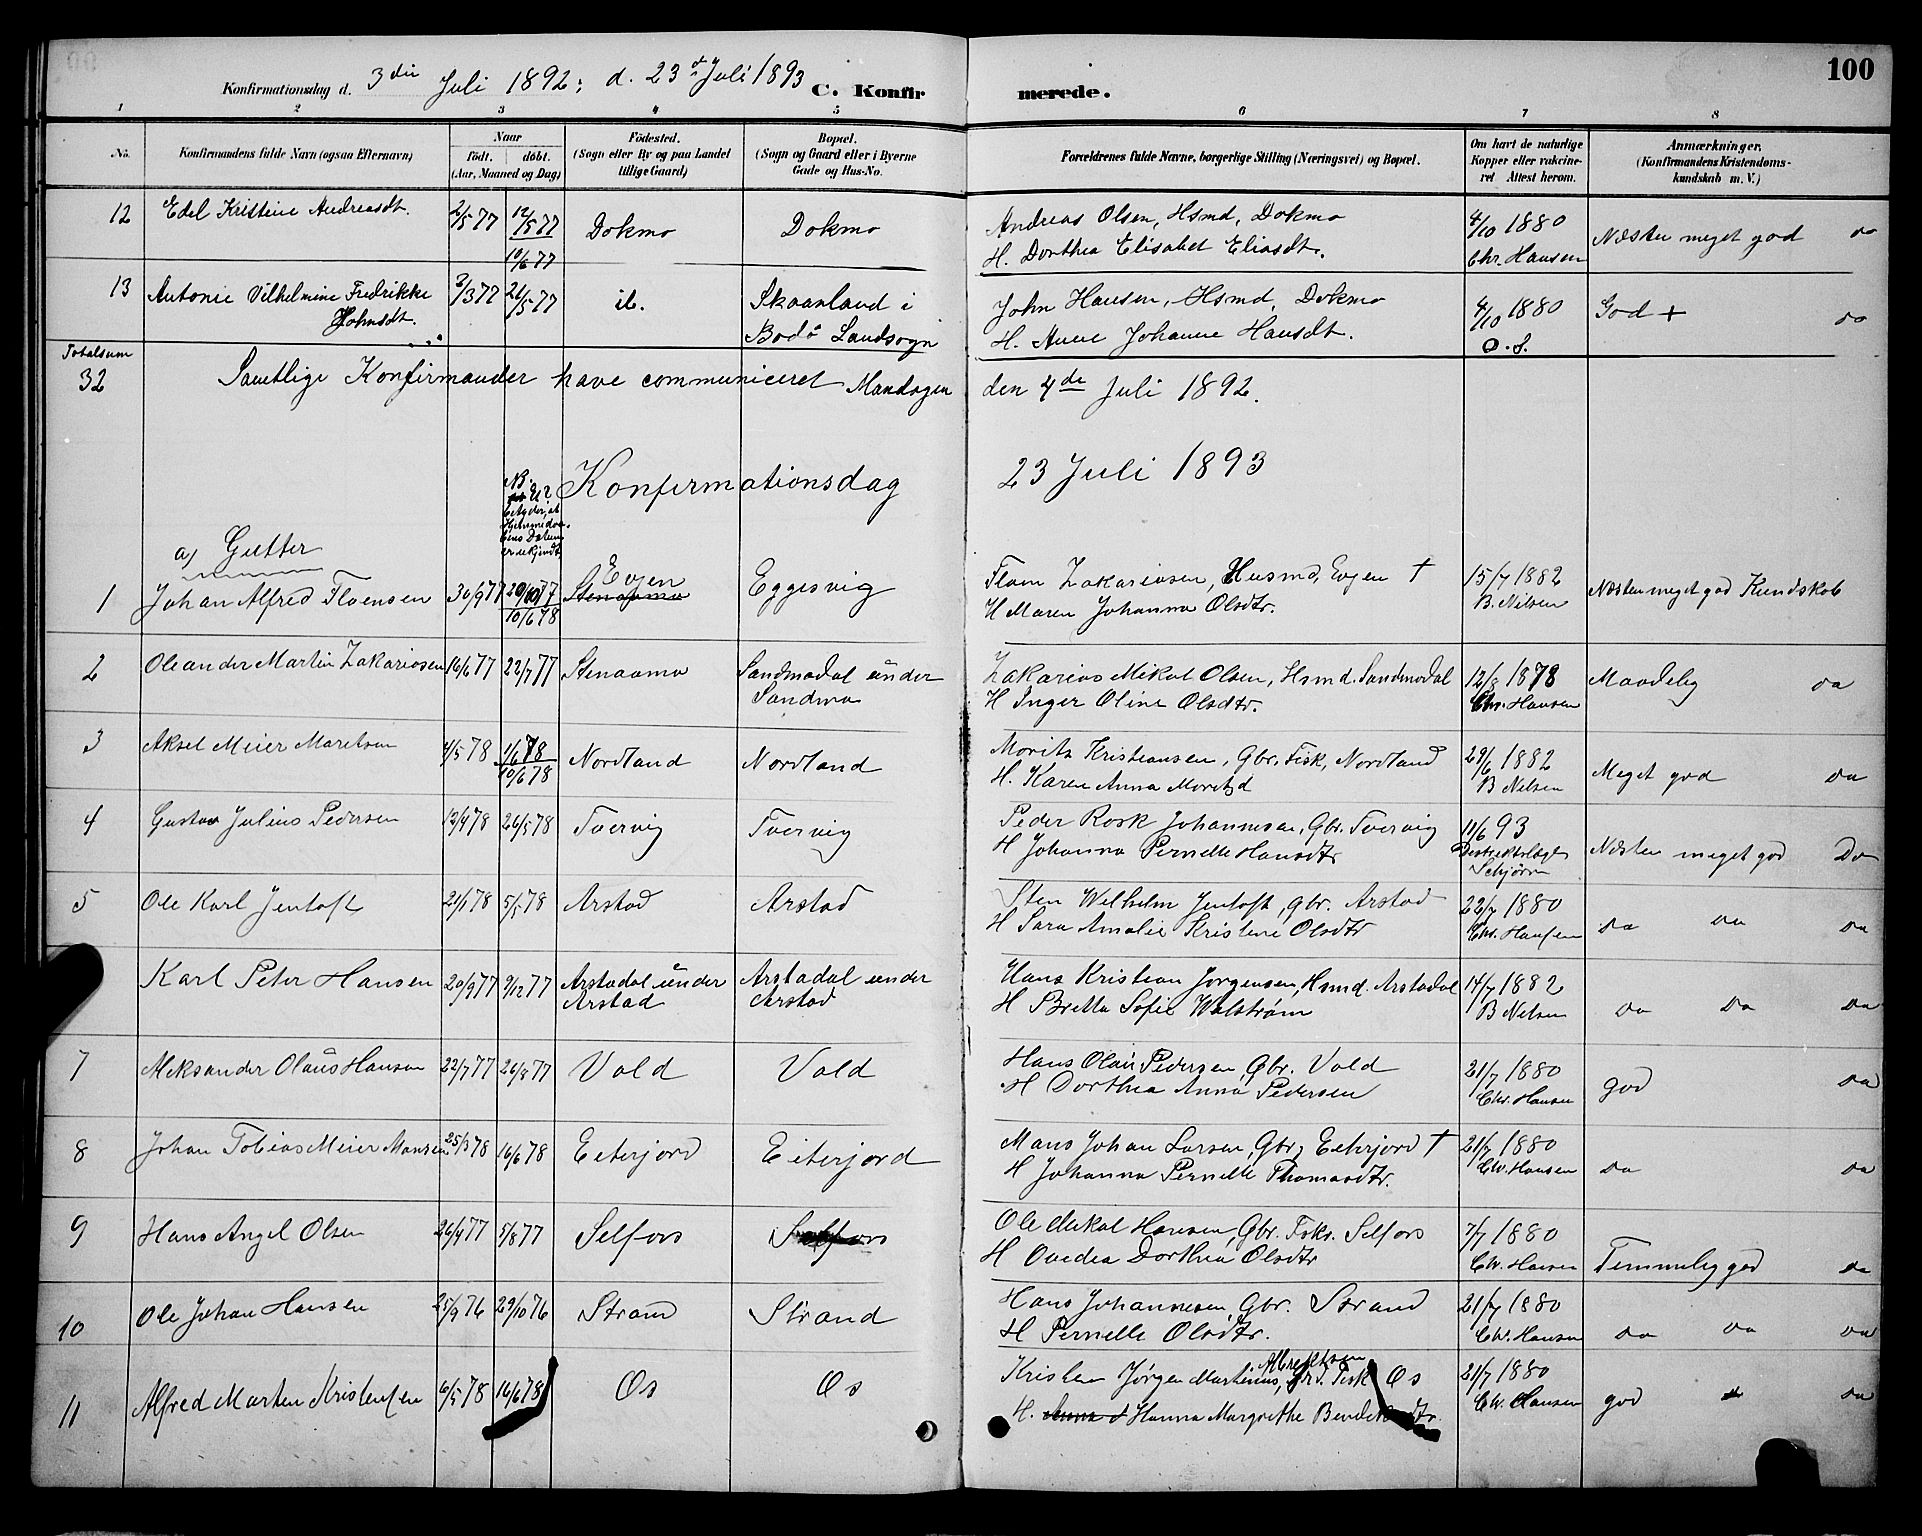 100
Konfirmationsdag d. 3die Juli 1892; d. 23d Juli 1893 C. Konfir merede.
1 2 3 4 5 6 7 8
No. Konfirmandens fulde Navn (ogsaa Efternavn) Naar födt. döbt. (Aar, Maaned og Dag) Födested. (Sogn eller By og paa Landet tillige Gaard) Bopæl. (Sogn og Gaard eller i Byerne Gade og Hus-No. Forældrenes fulde Navne, borgerlige Stilling (Næringsvei) og Bopæl. Om havt de naturlige Kopper eller vakcineret Attest herom. Anmærkninger. (Konfirmandens Kristendomskundskab m. V.)
12 Edel Kristine Andreasdt. 2/5 77 12/5 77 Dokmo Dokmo Andreas Olsen, Hsmd, Dokmo 4/10 1880 Næsten meget god do
10/6 77 H. Dorthea Elisabet Eliasdt. Chr. Hansen
13 Antonie Vilhelmine Fredrikke 3/3 77 21/5 77 ib. Skaanland i John Hansen, Hsmd, Dokmo 4/10 1880 God + do
Johnsdt. Bodö Landsogn H. Anne Johanne Hansdt. O. S.
Totalsum
32 Samtlige Konfirmander have communiceret Mandagen den 4de Juli 1892.
Konfirmationsdag 23 Juli 1893
NB.
betyder, at
Hjemmedaa-
bens Datum
er ukjendt
a) Gutter
1 Johan Alfred Floensen 30/9 77 20/10 77 Evjen Eggesvig Floen Zakariasen, Husmd, Evjen † 15/7 1882 Næsten meget god Kundskab
10/6 78 Stenaamo H Maren Johanna Olsdtr. B. Nilsen
2 Oleander Martin Zakariasen 16/6 77 22/7 77 Stenaamo Sandmodal under Zakarias Mikal Olsen, Hsmd. Sandmodal 12/8 1878 Maadelig do
Sandmo H Inger Oline Olsdtr. Chr. Hansen
3 Aksel Meier Moritsen 4/5 78 1/6 78 Nordland Nordland Moritz Kristiansen, Gbr. Fisk, Nordland 29/6 1882 Meget god do
10/6 78 H. Karen Anna Moritzd B Nilsen
4 Gustav Julius Pedersen 12/4 78 26/5 78 Tvervig Tvervig Peder Rosk Johannesen, Gbr. Tvervig 11/6 93 Næsten meget god Do
H Johanna Pernelle Hansdtr Distriktslæge
Schjörn
5 Ole Karl Jentoft 21/1 78 5/5 78 Arstad Arstad Sten Wilhelm Jentoft, gbr. Arstad 22/7 1880 do do do
H Sara Amalie Kristine Olsdtr Chr. Hansen
Karl Peter Hansen 20/9 77 9/12 77 Arstadal under Arstadal under Hans Kristian Jørgensen, Hsmd. Arstadal 14/7 1882 do do do
Arstad Arstad H Britta Sofie Walstrøm B Nilsen
7 Aleksander Olaus Hansen 22/7 77 26/8 77 Vold Vold Hans Olai Pedersen, Gbr. Vold 21/7 1880 god do
H Dorthea Anna Pedersen Chr. Hansen
8 Johan Tobias Meier Mansen 25/3 78 16/6 78 Eiterjord Eiterjord Mans Johan Larsen, Gbr, Eiterjord † 21/7 1880 do do
H Johanna Pernelle Thomasdtr. Chr. Hansen
9 Hans Angel Olsen 26/4 77 5/8 77 Selfors Selfors Ole Mikal Hansen, Gbr. Fskr. Selfors 7/7 1880 Temmelig god do
H Ovedia Dorthea Olsdtr Chr. Hansen
10 Ole Johan Hansen 25/9 76 29/10 76 Strand Strand Hans Johannesen, Gbr. Strand 21/7 1880 do do do
H Pernelle Olsdtr. Chr. Hansen
Albrektsen
11 Alfred Marten Kristensen 6/5 78 16/6 78 Os Os Kristen Jørgen Martinus, Gbr. Fisk Os 21/7 1880 god do
H. Anna Hanna Margrethe Chr. Hansen